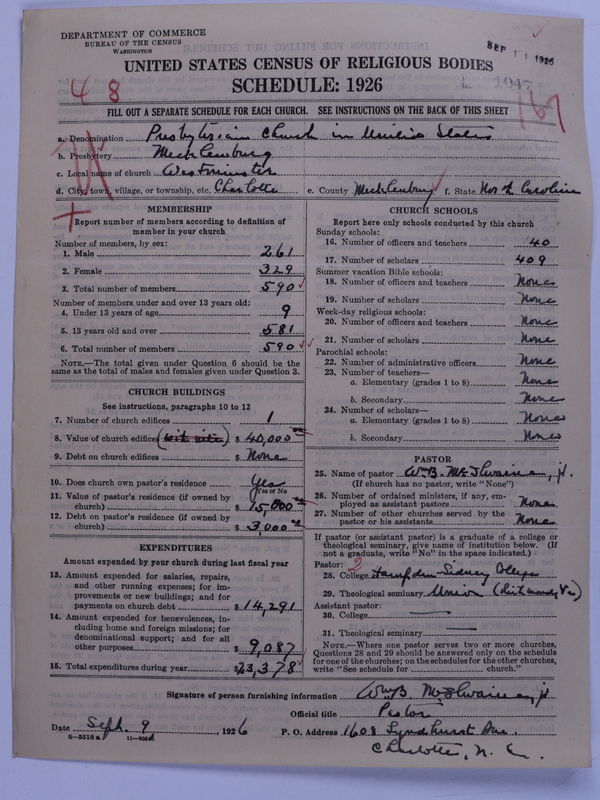 DEPARTMENT OF COMMERCE
BUREAU OF THE CENSUS
WASHINGTON
SEP 11 1926
UNITED STATES CENSUS OF RELIGIOUS BODIES
SCHEDULE: 1926
4 8
167
FILL OUT A SEPARATE SCHEDULE FOR EACH CHURCH. SEE INSTRUCTIONS ON THE BACK OF THIS SHEET
a. Denomination Presbyterian Church in United States
b. Presbytery Mecklenburg
c. Local name of church Westminster
d. City, town, village, or township, etc. Charlotte e. County Mecklenburg f. State North Carolina
MEMBERSHIP
Report number of members according to definition of
member in your church
Number of members, by sex:
1. Male 261
2. Female 329
3. Total number of members 590
Number of members under and over 13 years old:
4. Under 13 years of age 9
5. 13 years old and over 581
6. Total number of members 590
NOTE.—The total given under Question 6 should be the
same as the total of males and females given under Question 3.
CHURCH BUILDINGS
See instructions, paragraphs 10 to 12
7. Number of church edifices 1
8. Value of church edifices (with site) $ 40,000
9. Debt on church edifices $ None
10. Does church own pastor's residence? Yes
(Yes or No)
11. Value of pastor's residence (if owned by
church) $ 15,000
12. Debt on pastor's residence (if owned by
church) $ 3,000
EXPENDITURES
Amount expended by your church during last fiscal year
13. Amount expended for salaries, repairs,
and other running expenses; for im-
provements or new buildings; and for
payments on church debt $ 14,291
14. Amount expended for benevolences, in-
cluding home and foreign missions; for
denominational support; and for all
other purposes $ 9,087
15. Total expenditures during year $ 23,378
CHURCH SCHOOLS
Report here only schools conducted by this church
Sunday schools:
16. Number of officers and teachers 40
17. Number of scholars 409
Summer vacation Bible schools:
18. Number of officers and teachers None
19. Number of scholars None
Week-day religious schools:
20. Number of officers and teachers None
21. Number of scholars None
Parochial schools:
22. Number of administrative officers None
23. Number of teachers—
a. Elementary (grades 1 to 8) None
b. Secondary None
24. Number of scholars—
a. Elementary (grades 1 to 8) None
b. Secondary None
PASTOR
25. Name of pastor Wm B. McIlwaine, jr.
(If church has no pastor, write "None")
26. Number of ordained ministers, if any, em-
ployed as assistant pastors None
27. Number of other churches served by the
pastor or his assistants None
If pastor (or assistant pastor) is a graduate of a college or
theological seminary, give name of institution below. (If
not a graduate, write "No" in the space indicated.)
Pastor: 2
28. College Hampden Sidney College
29. Theological seminary Union (Richmond, Va)
Assistant pastor:
30. College
31. Theological seminary
NOTE.—Where one pastor serves two or more churches,
Questions 28 and 29 should be answered only on the schedule
for one of the churches; on the schedules for the other churches,
write "See schedule for church."
Signature of person furnishing information Wm B. McIlwaine, jr
Official title Pastor
Date Sept. 9, 1926 P. O. Address 1608 Lyndhurst Ave.
8—5518a 11—9084
Charlotte, N. C.